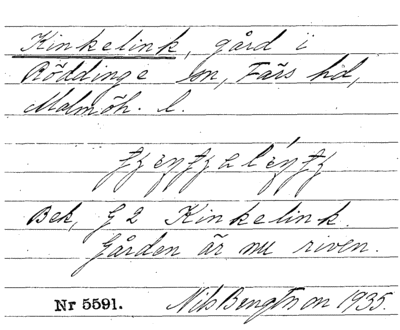 Kinkelink, gård i
Röddinge sn, Färs hd,
Malmöh. l.
Bek, G 2 Kinkelink.
Gården är nu riven.
Nr 5591. Nils Bengtsson 1935.